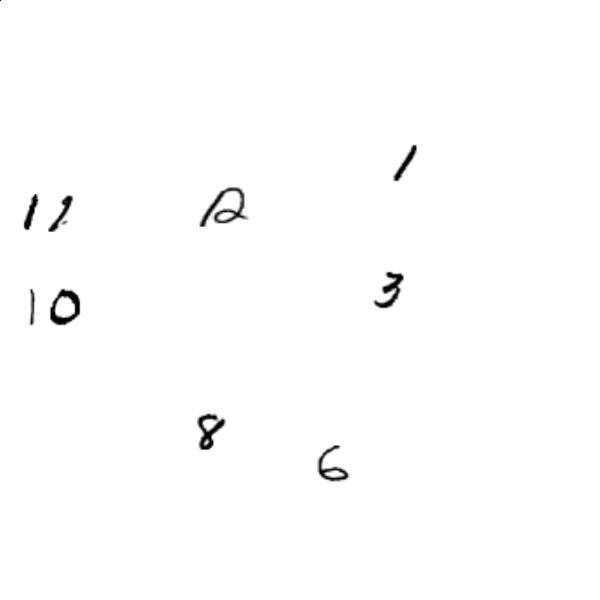 1
11 12
10 3
8
6